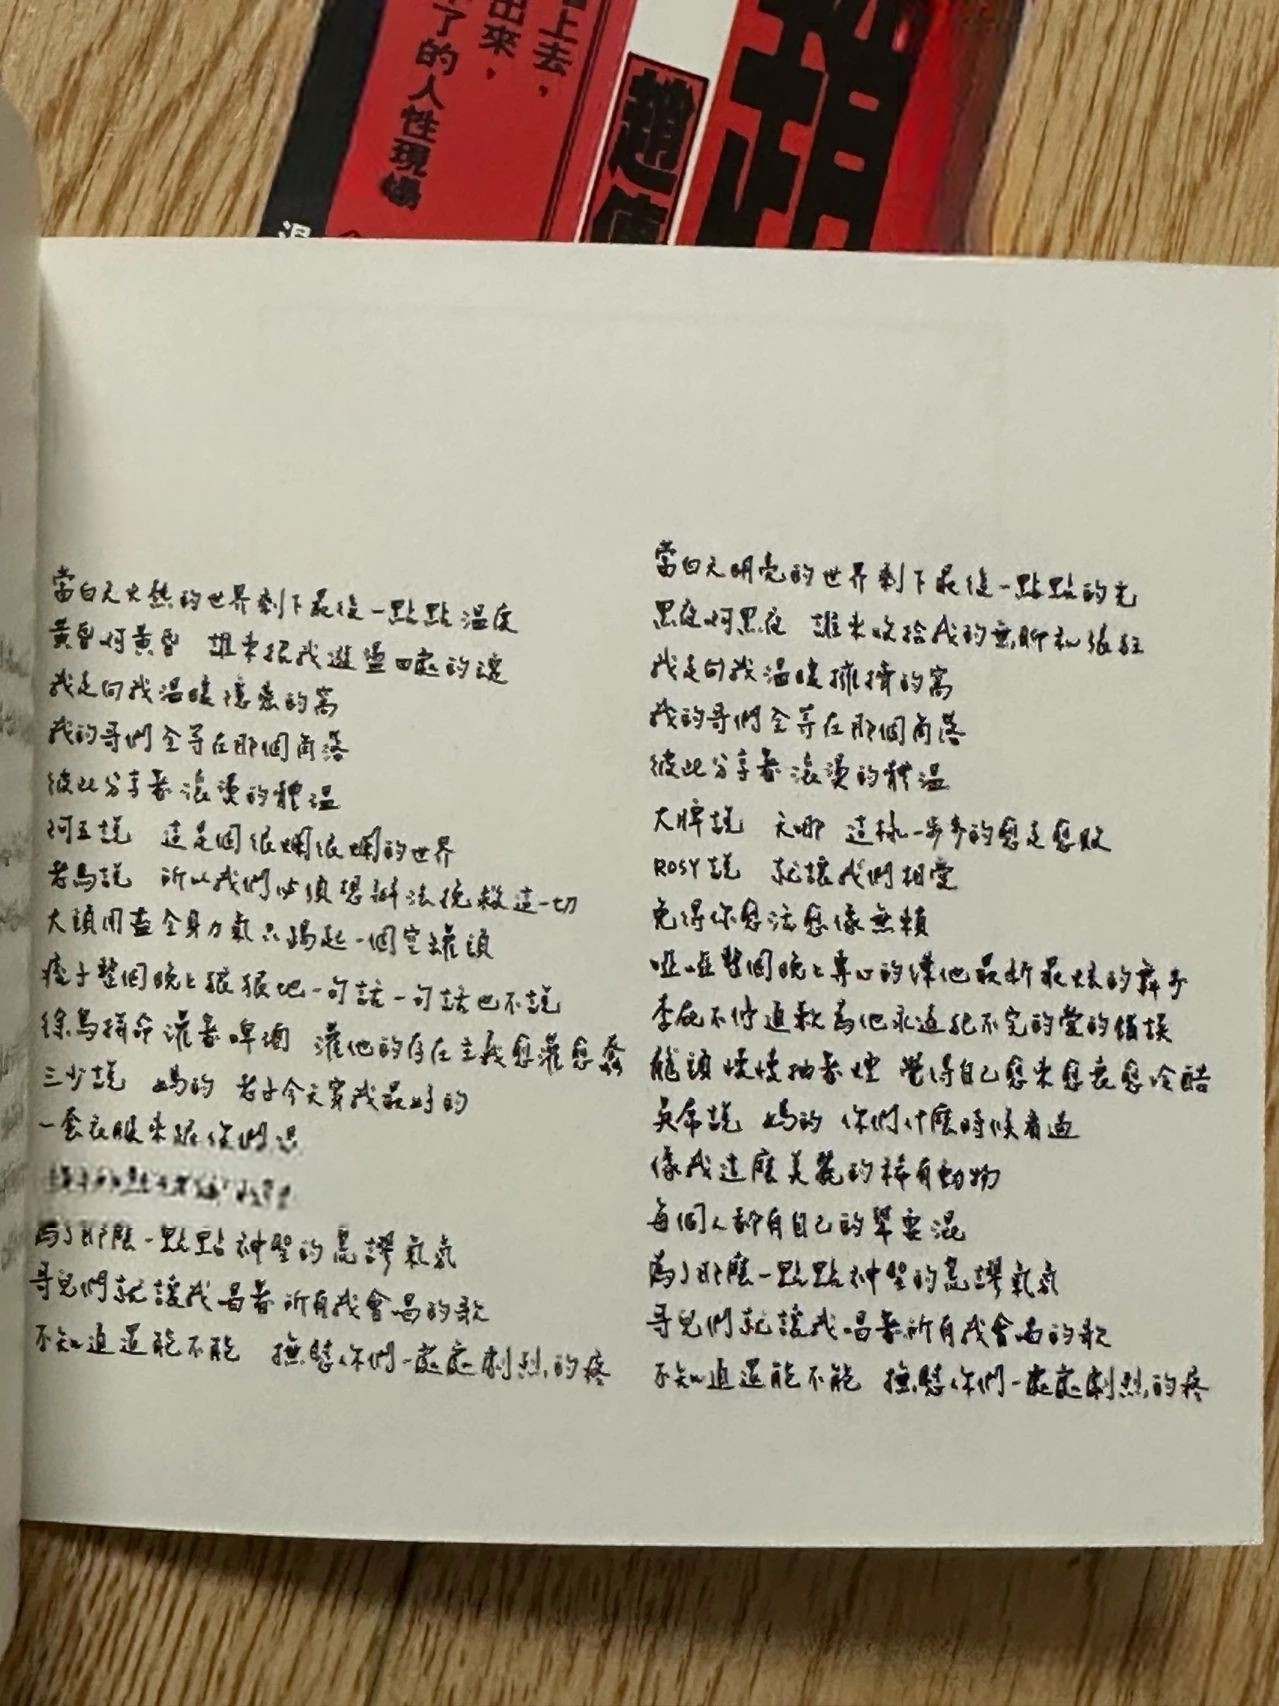 上去，
出來，
了的人性現場
趙傳
當白天火熱的世界剩下最後一點點溫度
黃昏啊黃昏 誰來把我遊盪四處的魂
我走向我溫暖的窩
我的哥們全等在那個角落
彼此分享著滾燙的體溫
阿五說 這是個很爛很爛的世界
老馬說 所以我們必須想辦法挽救這一切
大頭用盡全身力氣只踢起一個空罐頭
痞子整個晚上狠狠地一句話一句話也不說
徐鳥拼命灌著啤酒 灌他的存在主義愈灌愈蠢
三少說 媽的 老子今天穿我最好的
一套衣服來跟你們混
為了那麼一點點神聖的荒謬氣氛
哥兒們就讓我唱著所有我會唱的歌
不知道還能不能 撫慰你們一處處劇烈的疼
當白天明亮的世界剩下最後一點點的光
黑夜啊黑夜 誰來收拾我的無聊和張狂
我走向我溫暖擁擠的窩
我的哥們全等在那個角落
彼此分享著滾燙的體溫
大牌說 天哪 這樣一步步的愈走愈敗
ROSY說 就讓我們相愛
免得你愈活愈像無賴
啞啞整個晚上專心的練他最新最炫的舞步
李屁不停道歉為他永遠犯不完的愛的錯誤
龍頭慢慢抽著煙 覺得自己愈來愈衰愈冷酷
吳帝說 媽的 你們什麼時候看過
像我這麼美麗的稀有動物
每個人都有自己的單要混
為了那麼一點點神聖的荒謬氣氛
哥兒們就讓我唱著所有我會唱的歌
不知道還能不能 撫慰你們一處處劇烈的疼